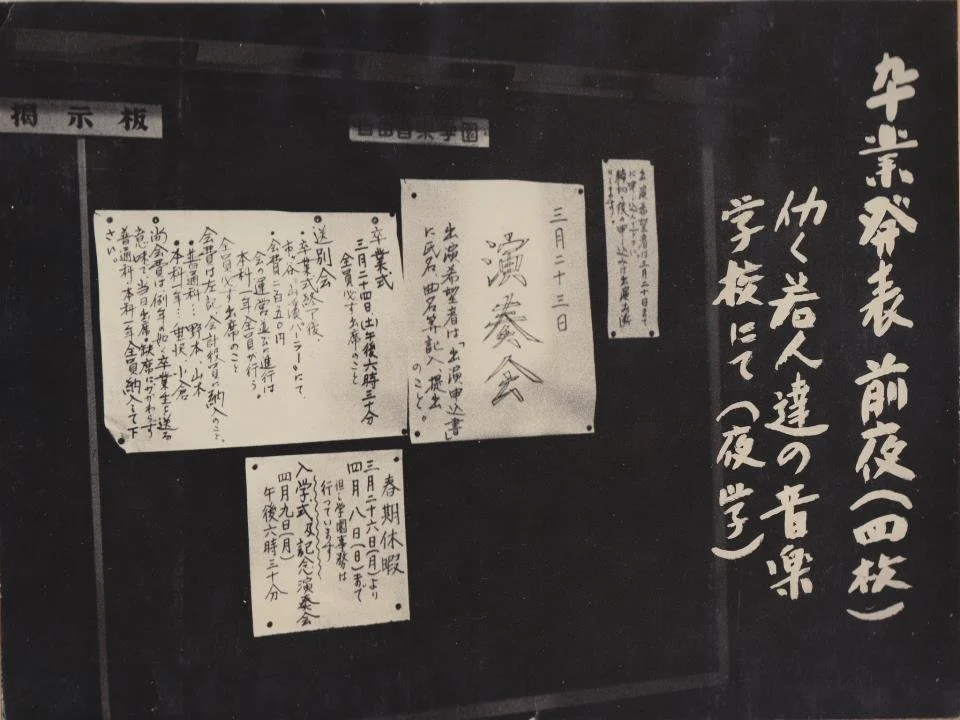 卒業発表 前夜(四枚)
仂く若人達の音楽
学校にて(夜学)
掲示板
自由音楽学園
出演希望者は三月二十日まで
に申し込んで下さい
締切り後の申し込みは出演出来
三月二十三日
演奏会
出演希望者は「出演申込書」
に氏名、曲名等記入、提出
のこと。
卒業式
三月二十四日(土)午後六時三十分
全員必ず出席のこと
送別会
・卒業式終了後、
にて、
・会費 二百五十円
・会の運営並びに進行は
本科一年全員が行う。
全員必ず出席のこと
会費は左記、会計役員に納入のこと、
・普通科…野本、山木
・本科一年…小倉
尚会費は例年の如く卒業生を送る
意味で、当日出席・缺席にかかわらず
普通科、本科一年全員納入して下
さい。
春期休暇
三月二十六日(月)より
四月 八日(日)まで
但し学園事務は
行っています
入学式及記念演奏会
四月九日(月)
午後六時三十分